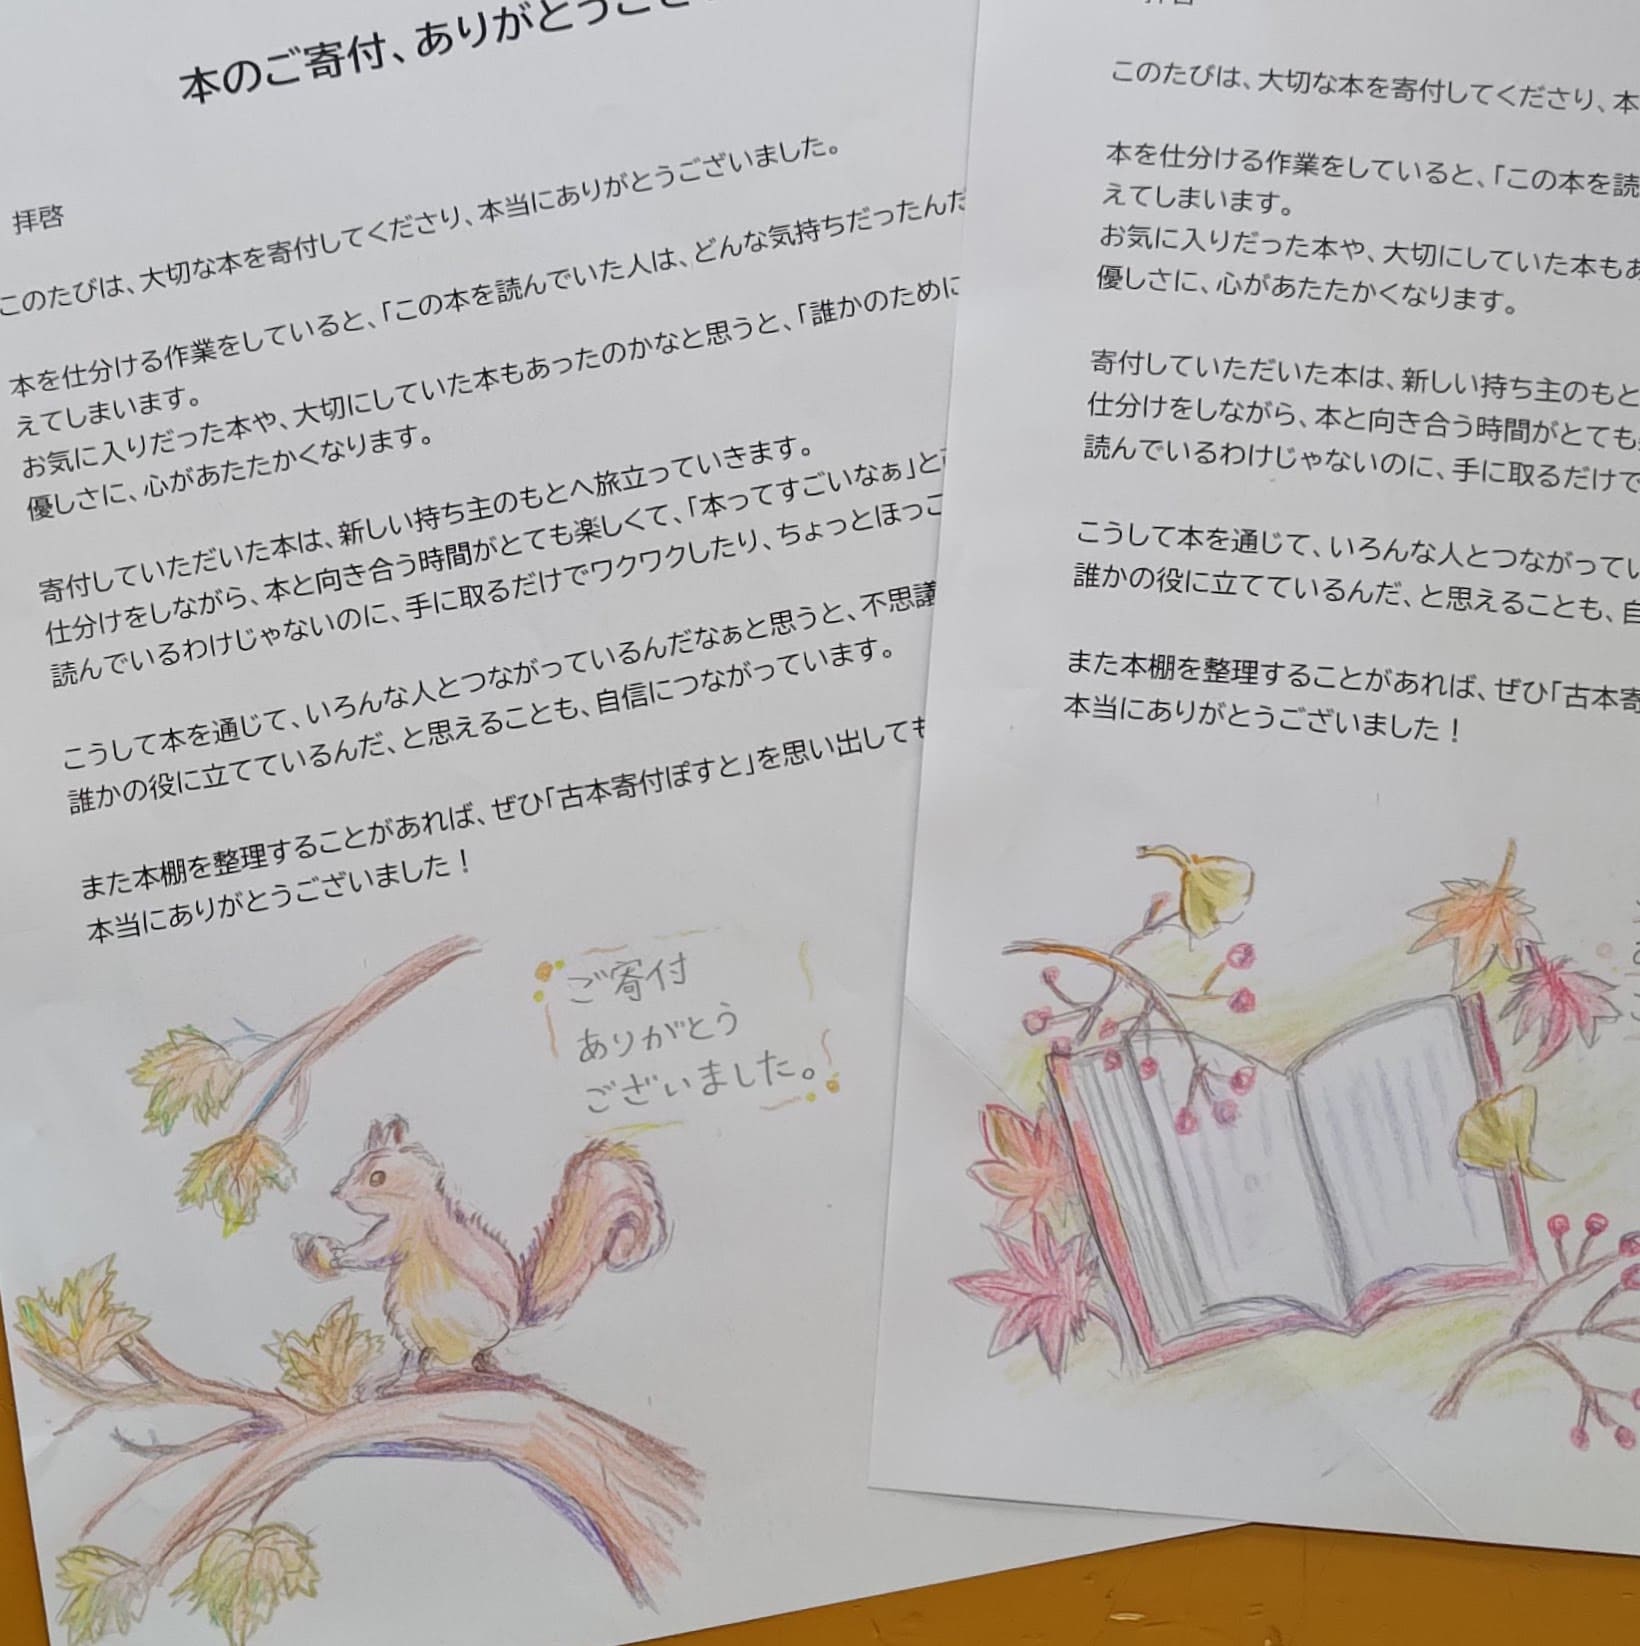 本のご寄付、ありがとうござ
拝啓
このたびは、大切な本を寄付してくださり、本当にありがとうございました。
本を仕分ける作業をしていると、「この本を読んでいた人は、どんな気持ちだったんだ
えてしまいます。
お気に入りだった本や、大切にしていた本もあったのかなと思うと、「誰かのために
優しさに、心があたたかくなります。
寄付していただいた本は、新しい持ち主のもとへ旅立っていきます。
仕分けをしながら、本と向き合う時間がとても楽しくて、「本ってすごいなぁ」と
読んでいるわけじゃないのに、手に取るだけでワクワクしたり、ちょっとほっこ
こうして本を通じて、いろんな人とつながっているんだなぁと思うと、不思議
誰かの役に立てているんだ、と思えることも、自信につながっています。
また本棚を整理することがあれば、ぜひ「古本寄付ぽすと」を思い出しても
本当にありがとうございました！
ご寄付
ありがとう
ございました。
このたびは、大切な本を寄付してくださり、本
本を仕分ける作業をしていると、「この本を読
えてしまいます。
お気に入りだった本や、大切にしていた本もあ
優しさに、心があたたかくなります。
寄付していただいた本は、新しい持ち主のもと
仕分けをしながら、本と向き合う時間がとても
読んでいるわけじゃないのに、手に取るだけで
こうして本を通じて、いろんな人とつながってい
誰かの役に立てているんだ、と思えることも、自
また本棚を整理することがあれば、ぜひ「古本寄
本当にありがとうございました！